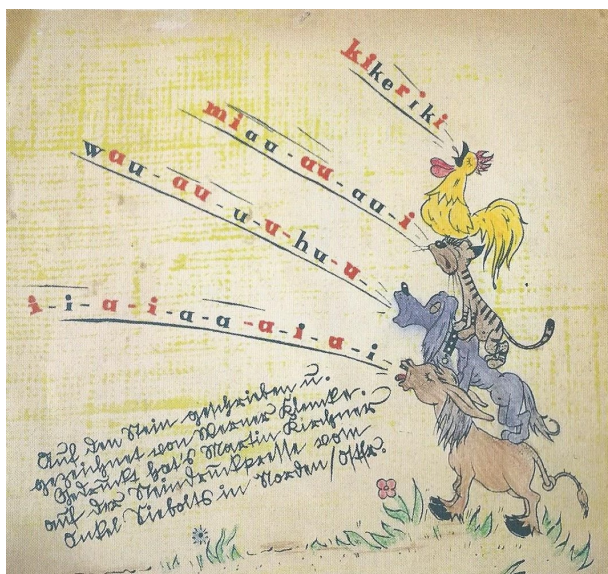 kikeriki
miau-au-au-i
wau-au-u-u-hu-u
i-i-a-i-a-a-a-i-a-i
Auf den Stein geschrieben u.
gezeichnet von Werner Klemke.
Gedruckt hat's Martin Kirchner
auf der Steindruckpresse vom
Onkel Siebolts in Norden/Ostfr.